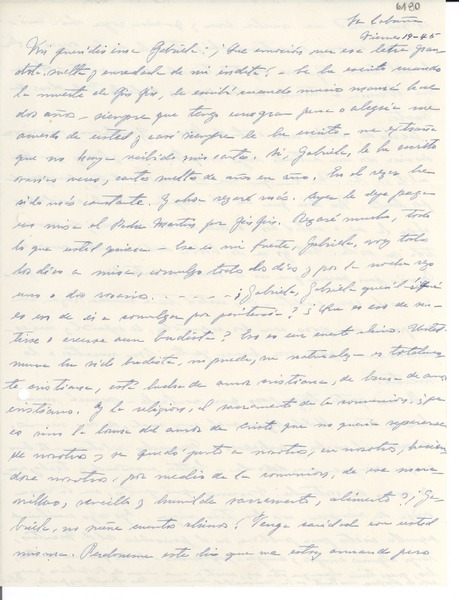 6190
La Cabaña
Viernes 19-45
Mi queridísima Gabriela: ¡Qué emoción ver esa letra gran
dota, suelta y enredada de mi indita! Le he escrito cuando
la muerte de Yin Yin, le escribí cuando murió mamá hace
dos años - siempre que tengo una gran pena o alegría me
acuerdo de usted y casi siempre le he escrito - me extraña
que no haya recibido mis cartas. Sí, Gabriela, le he escrito
varias veces, cartas sueltas de año en año. En el rezo he
sido más constante. Y ahora rezaré más. Ayer le dejé paga
una misa al Padre Martos por Yin Yin. Rezaré mucho, todo
lo que usted quiera - Ese es mi fuerte, Gabriela, voy todos
los días a misa, comulgo todos los días y por la noche rezo
uno o dos rosarios. . . . . . ¡Gabriela, Gabriela querida! ¿Qué
es eso de ir a comulgar por penitencia? ¿Qué es eso de sen-
tirse o creerse aun budista? Eso es un cuento chino. Usted
nunca ha sido budista, no puede, su naturaleza es totalmen
te cristiana, está hecha de amor cristiano, de
cristiano. Y la religiosa, el sacramento de la comunión, ¿qué
es sino la
del amor de Cristo que no quería separarse
de nosotros y se quedó junto a nosotros, en nosotros, hacién
dose nosotros por medio de la comunión, de ese mara-
villoso, sencillo y humilde sacramento, alimento? ¡Ga-
briela, no
cuentos chinos! Tenga caridad con usted
misma. Perdóneme este lío que me estoy armando pero